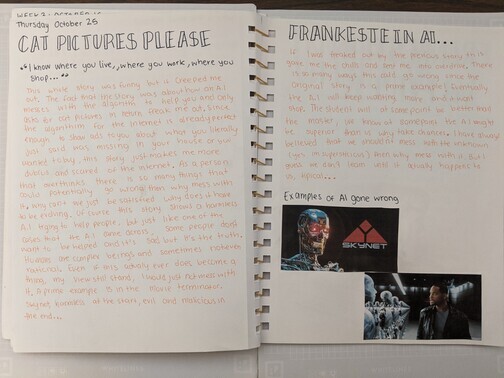 WEEK 9: OCTOBER
Thursday October 25
CAT PICTURES PLEASE
"I know where you live, where you work, where you
shop..."
This whole story was funny but it creeped me
out. The fact that the story was about how an AI
messes with the algorithm to help you and only
asks for cat pictures in return freak me out, since
the algorithm for the internet is already perfect
enough to show ads to you about what you literally
just said was missing in your house or you
wanted to buy, this story just makes me more
dubious and scared of the internet. As a person
that overthinks there is so many things that
could potentially go wrong then why mess with
it? Why can't we just be satisfied why does it have
to be evolving. Of course this story shows a harmless
AI trying to help people, but just like one of the
cases that the AI came across, some people don't
want to be helped and it's sad but it's the truth.
Humans are complex beings and sometimes not even
rational. Even if this actually ever does become a
thing, my view still stand, I would just not mess with
it, a prime example is in the movie terminator.
Skynet harmless at the start, evil and malicious in
the end...
FRANKENSTEIN AI...
If I was freaked out by the previous story this
gave me the chills and sent me into overdrive. There
is so many ways this could go wrong since the
original story is a prime example! Eventually
the AI will keep wanting more and more
than The student will at some point be better than
the master, we know at some point the AI might
be superior then why take chances. I have always
believed that we shouldn't mess with the unknown
(yes I'm superstitious) then why mess with it. But I
guess we don't learn until it already happens to
us, typical...
Examples of AI gone wrong
SKYNET